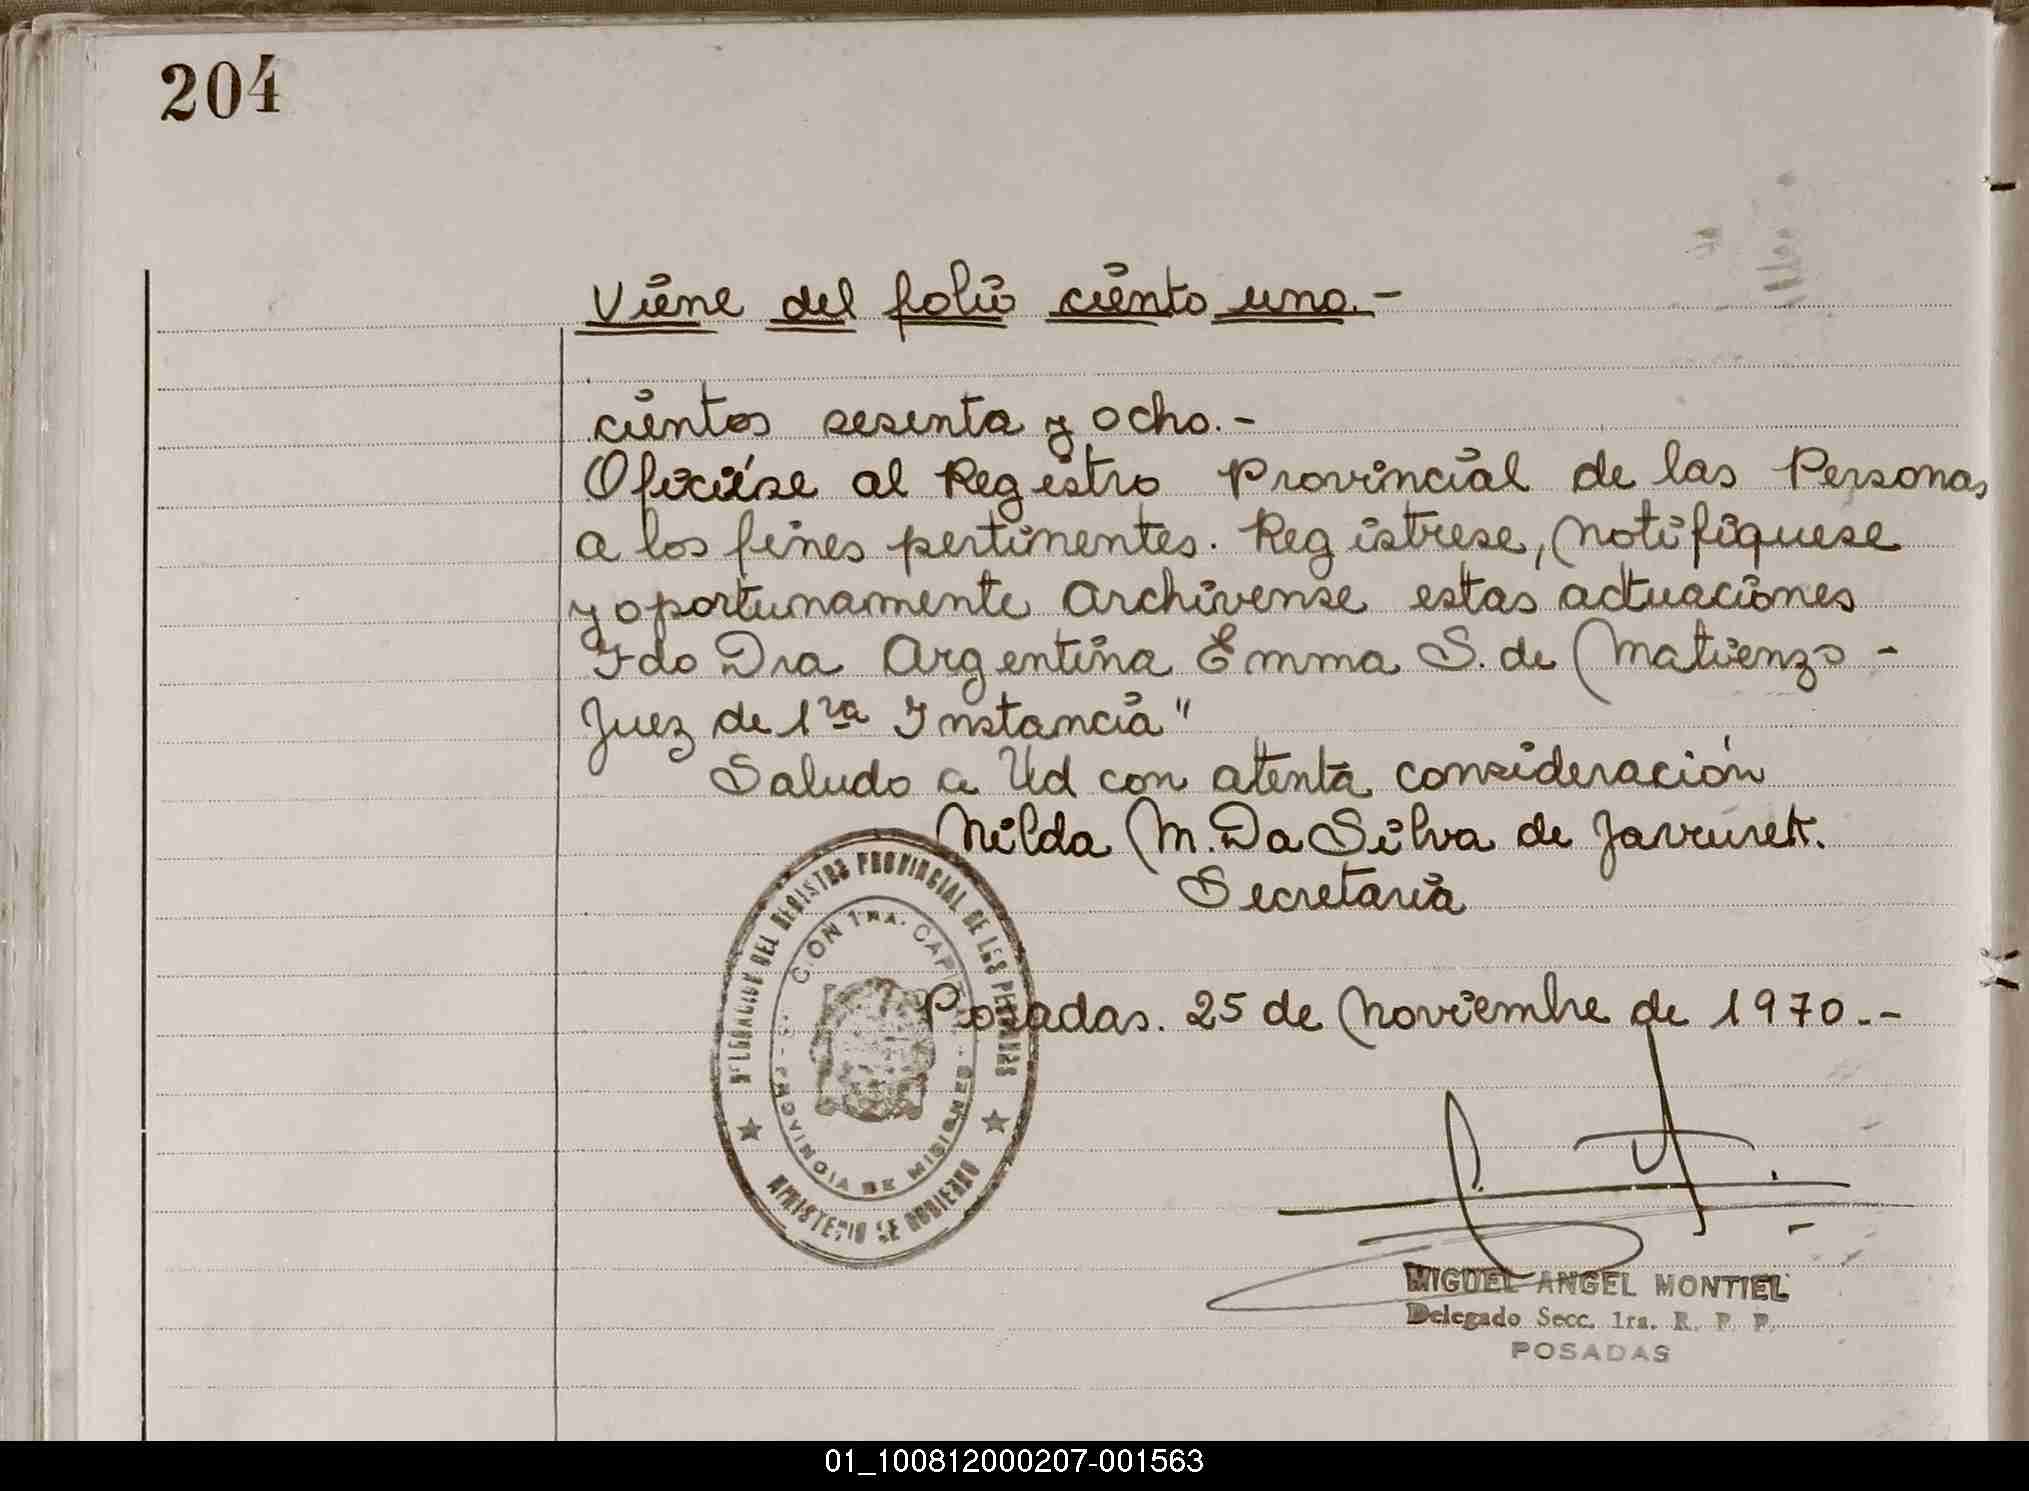 204
Viene del folio ciento uno.-
cientos sesenta y ocho.-
Ofíciése al Registro Provincial de las Personas
a los fines pertinentes. Registrese, notifiquese
y oportunamente archivense estas actuaciones
Fdo Dra Argentina Emma S. de Matienzo -
Juez de 1ra Instancia"
Saludo a Ud con atenta consideración
Nilda M. Da Silva de
Secretaria
DELEGACION DEL REGISTRO PROVINCIAL DE LAS PERSONAS
CION 1RA. CAP
PROVINCIA DE MISIONES
MINISTERIO DE GOBIERNO
Posadas. 25 de Noviembre de 1970.--
MIGUEL ANGEL MONTIEL
Delegado Secc. 1ra. R. P. P.
POSADAS
01_100812000207-001563